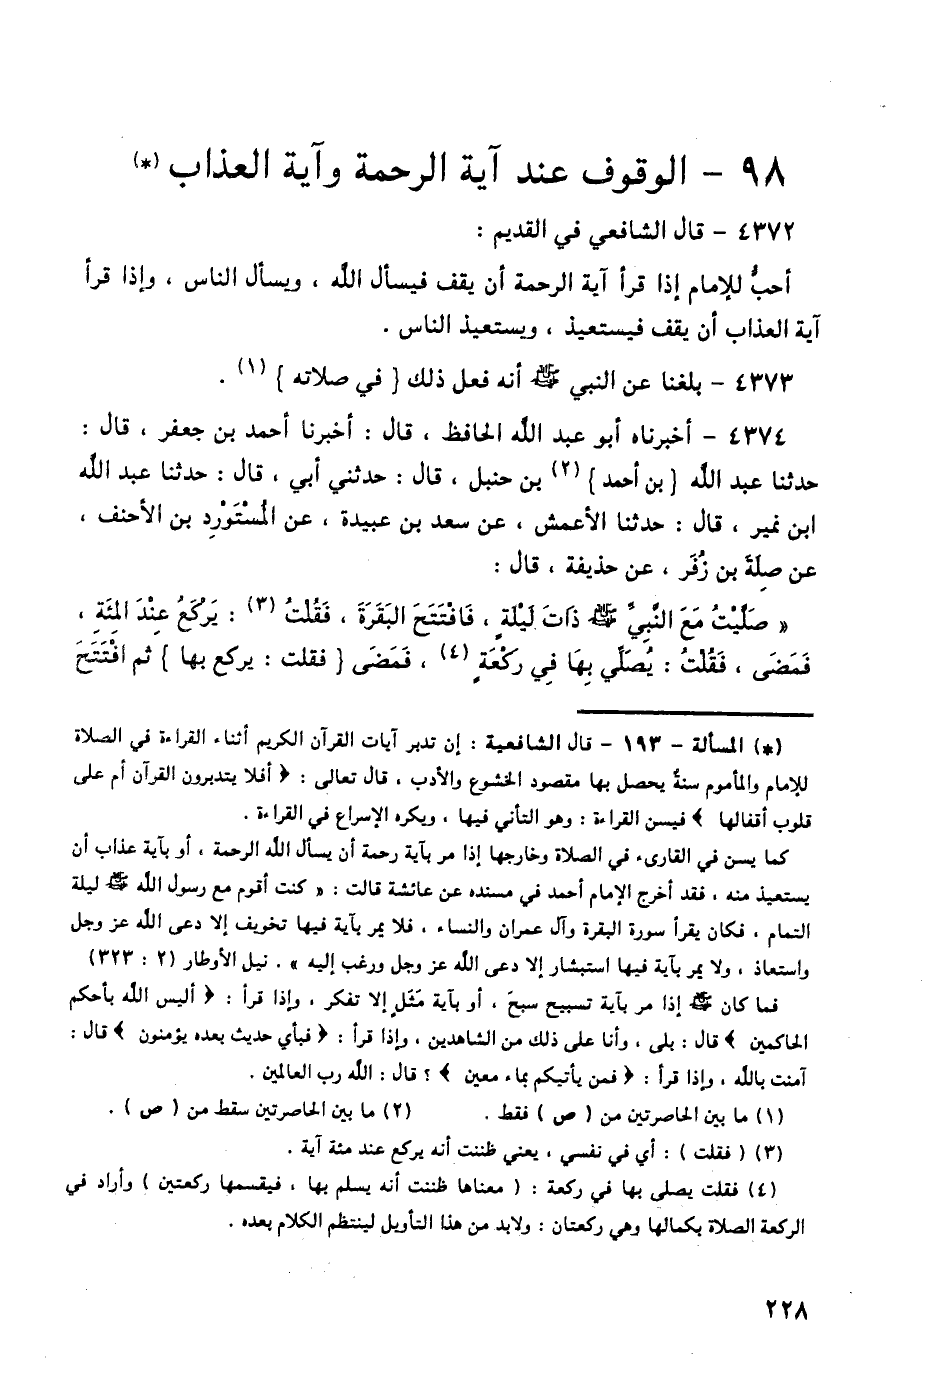 ٩٨ - الوقوف عند آية الرحمة وآية العذاب (*)
٤٣٧٢ - قال الشافعي في القديم :
أحبُّ للإمام إذا قرأ آية الرحمة أن يقف فيسأل الله ، ويسأل الناس ، وإذا قرأ
آية العذاب أن يقف فيستعيذ ، ويستعيذ الناس .
٤٣٧٣ - بلغنا عن النبي ﷺ أنه فعل ذلك { في صلاته } (١) .
٤٣٧٤ - أخبرناه أبو عبد الله الحافظ ، قال : أخبرنا أحمد بن جعفر ، قال :
حدثنا عبد الله { بن أحمد } (٢) بن حنبل ، قال : حدثني أبي ، قال : حدثنا عبد الله
ابن نمير ، قال : حدثنا الأعمش ، عن سعد بن عبيدة ، عن المُسْتَوْرِد بن الأحنف ،
عن صِلَةَ بن زُفَر ، عن حذيفة ، قال :
« صَلَّيْتُ مَعَ النَّبِيِّ ﷺ ذَاتَ لَيْلَةٍ ، فَافْتَتَحَ البَقَرَةَ ، فَقُلْتُ (٣) : يَرْكَعُ عِنْدَ المِئَةِ ،
فَمَضَى ، فَقُلْتُ : يُصَلِّي بِهَا فِي رَكْعَةٍ (٤) ، فَمَضَى { فقلت : يركع بها } ثم افْتَتَحَ
(*) المسألة - ١٩٣ - قال الشافعية : إن تدبر آيات القرآن الكريم أثناء القراءة في الصلاة
للإمام والمأموم سنةٌ يحصل بها مقصود الخشوع والأدب ، قال تعالى : ﴿ أفلا يتدبرون القرآن أم على
قلوب أقفالها ﴾ فيسن القراءة : وهو التأني فيها ، ويكره الإسراع في القراءة .
كما يسن في القارىء في الصلاة وخارجها إذا مر بآية رحمة أن يسأل الله الرحمة ، أو بآية عذاب أن
يستعيذ منه ، فقد أخرج الإمام أحمد في مسنده عن عائشة قالت : « كنت أقوم مع رسول الله ﷺ ليلة
التمام ، فكان يقرأ سورة البقرة وآل عمران والنساء ، فلا يمر بآية فيها تخويف إلا دعى الله عز وجل
واستعاذ ، ولا يمر بآية فيها استبشار إلا دعى الله عز وجل ورغب إليه » . نيل الأوطار (٢ : ٣٢٣)
فما كان ﷺ إذا مر بآية تسبيح سبحَ ، أو بآية مَثَلٍ إلا تفكر ، وإذا قرأ : ﴿ أليس الله بأحكم
الحاكمين ﴾ قال : بلى ، وأنا على ذلك من الشاهدين ، وإذا قرأ : ﴿ فبأي حديث بعده يؤمنون ﴾ قال :
آمنت بالله ، وإذا قرأ : ﴿ فمن يأتيكم بماء معين ﴾ ؟ قال : الله رب العالمين .
(١) ما بين الحاصرتين من ( ص ) فقط . (٢) ما بين الحاصرتين سقط من ( ص ) .
(٣) ( فقلت ) : أي في نفسي ، يعني ظننت أنه يركع عند مئة آية .
(٤) فقلت يصلي بها في ركعة : ( معناها ظننت أنه يسلم بها ، فيقسمها ركعتين ) وأراد في
الركعة الصلاة بكمالها وهي ركعتان : ولابد من هذا التأويل لينتظم الكلام بعده .
٢٢٨